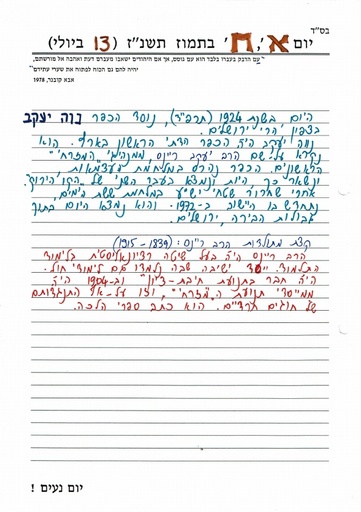 בס"ד
יום א', ח' בתמוז תשנ"ז (13 ביולי)
"עם הדבק בעברו בלבד הוא עם גוסס, אך אם היהודים ישאבו מעברם דעת ואהבה אל מורשתם,
יהיה להם גם הכוח לפתוח את שערי עתידם"
אבא קובנר, 1978
היום בשנת 1924 (תרפ"ד), נוסד הכפר נוה יעקב
בצפון הרי ירושלים.
נווה יעקב היה הכפר הדתי הראשון בארץ. הוא
נקרא על-שם הרב יעקב ריינס, ממנהיגי "המזרחי"
הראשונים. הכפר נהרס במלחמת העצמאות,
ונשאר כך היות ונמצא בעבר השני של הקו הירוק.
אחרי שחרור שטחי יש"ע במלחמת ששת הימים,
נתחדש בו היישוב ב-1972. והוא נמצא היום בתוך
גבולות הבירה, ירושלים.
קצת מתולדות הרב ריינס: (1839-1915)
הרב ריינס היה בעל שיטה רציונאליסטית בלימוד
התלמוד. ייסד ישיבה שבה נלמדו גם לימודי חול.
היה חבר בתנועת חיבת-ציון וב-1904 היה
ממייסדי תנועת ה"מזרחי", וזו על-אף התנגדותם
של חוגים חרדיים. הוא כתב ספרי הלכה.
יום נעים !